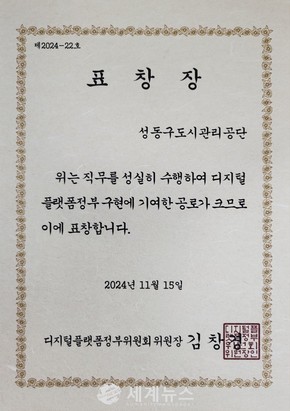 제2024-22호
표 창 장
성동구도시관리공단
위는 직무를 성실히 수행하여 디지털
플랫폼정부 구현에 기여한 공로가 크므로
이에 표창합니다.
2024년 11월 15일
디지털플랫폼정부위원회위원장 김 창
세계뉴스